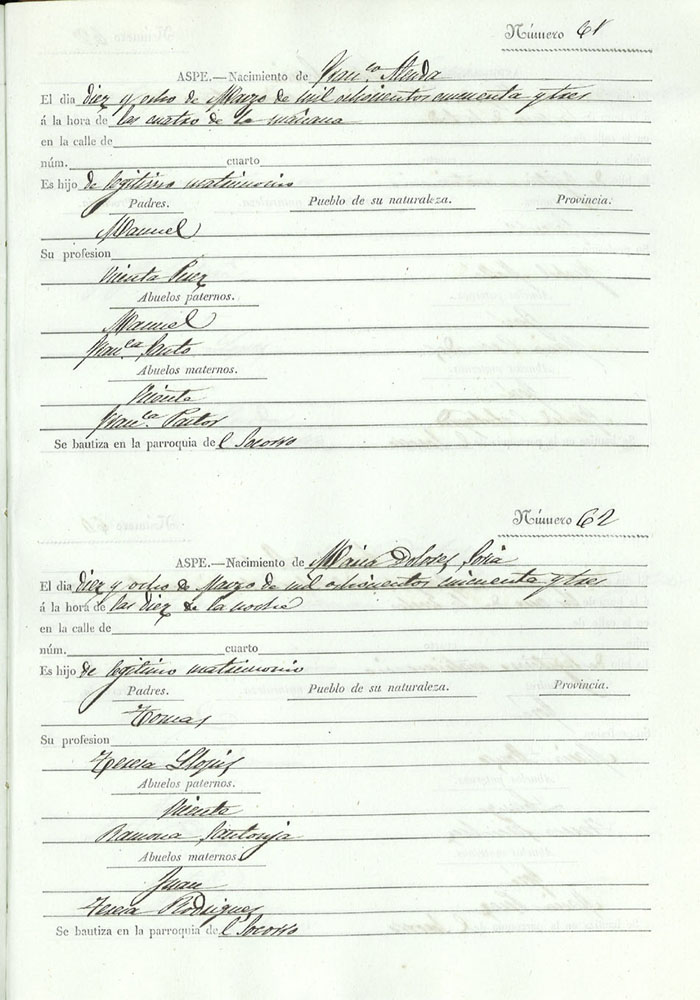 Número 61
ASPE.—Nacimiento de Fran.co Almda
El dia diez y ocho de Marzo de mil ochocientos cincuenta y tres
á la hora de las cuatro de la mañana
en la calle de
núm. cuarto
Es hijo de legitimo matrimonio
Padres. Pueblo de su naturaleza. Provincia.
Manuel
Su profesion
Vicenta Perez
Abuelos paternos.
Manuel
Fran.ca Santo
Abuelos maternos.
Vicente
Fran.ca Pastor
Se bautiza en la parroquia del Socorro
Número 62
ASPE.—Nacimiento de Maria Dolores Soria
El dia diez y ocho de Marzo de mil ochocientos cincuenta y tres
á la hora de las diez de la noche
en la calle de
núm. cuarto
Es hijo de legitimo matrimonio
Padres. Pueblo de su naturaleza. Provincia.
Tomas
Su profesion
Teresa Llopis
Abuelos paternos.
Vicente
Ramona Santonja
Abuelos maternos.
Juan
Teresa Rodriguez
Se bautiza en la parroquia de l Socorro